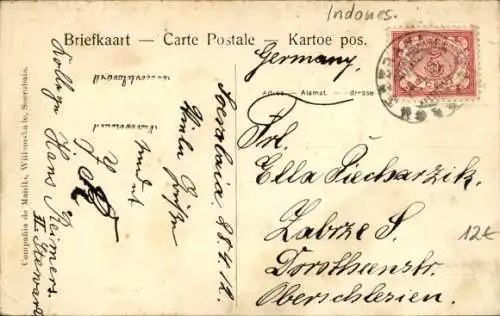 Indones.
Briefkaart — Carte Postale — Kartoe pos.
Germany
Adres — Alamat. — Adresse
Frl.
Ella Piecharzik.
Zabrze S.
Dorotheenstr.
Oberschlesien.
12€
Soerabaia 28.4.12.
Viele Grüße
sendet
Kollege Hans Reimers.
II. Steward
Compañia de Manila, Willemskade, Soerabaia.